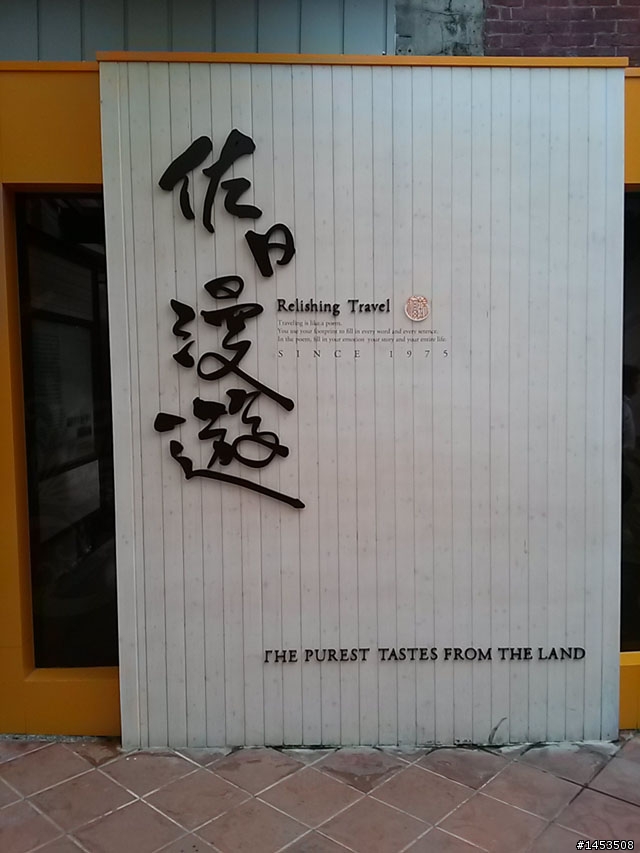 佐日漫遊
Relishing Travel
Traveling is like a poem.
You use your footprint to fill in every word and every sentence.
In the poem, fill in your emotion your story and your entire life.
SINCE 1975
THE PUREST TASTES FROM THE LAND
#1453508